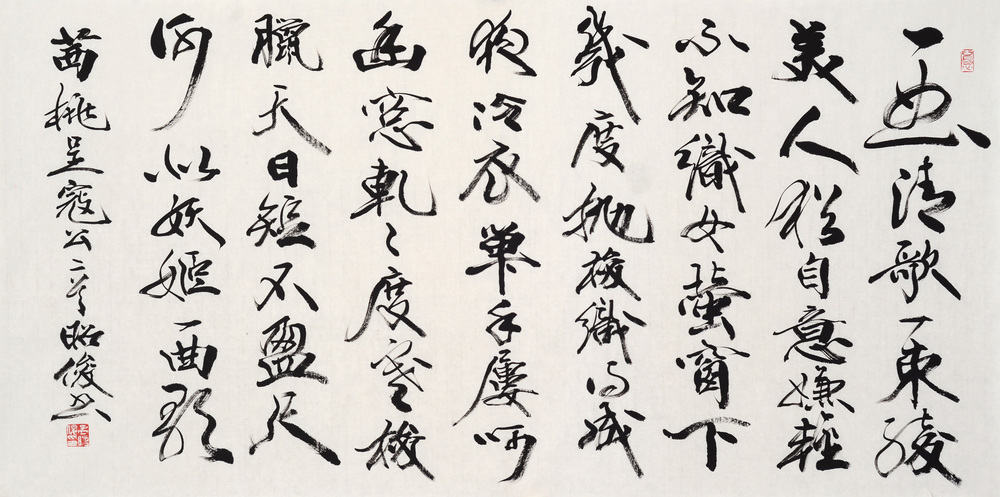 一曲清歌一束綾
美人猶自意嫌輕
不知織女螢窗下
幾度拋梭織得成
夜冷衣單手屢呵
幽窓軋々度寒梭
臘天日短不盈尺
何似妖姬一曲歌
茜桃呈寇公二首 昭俊書